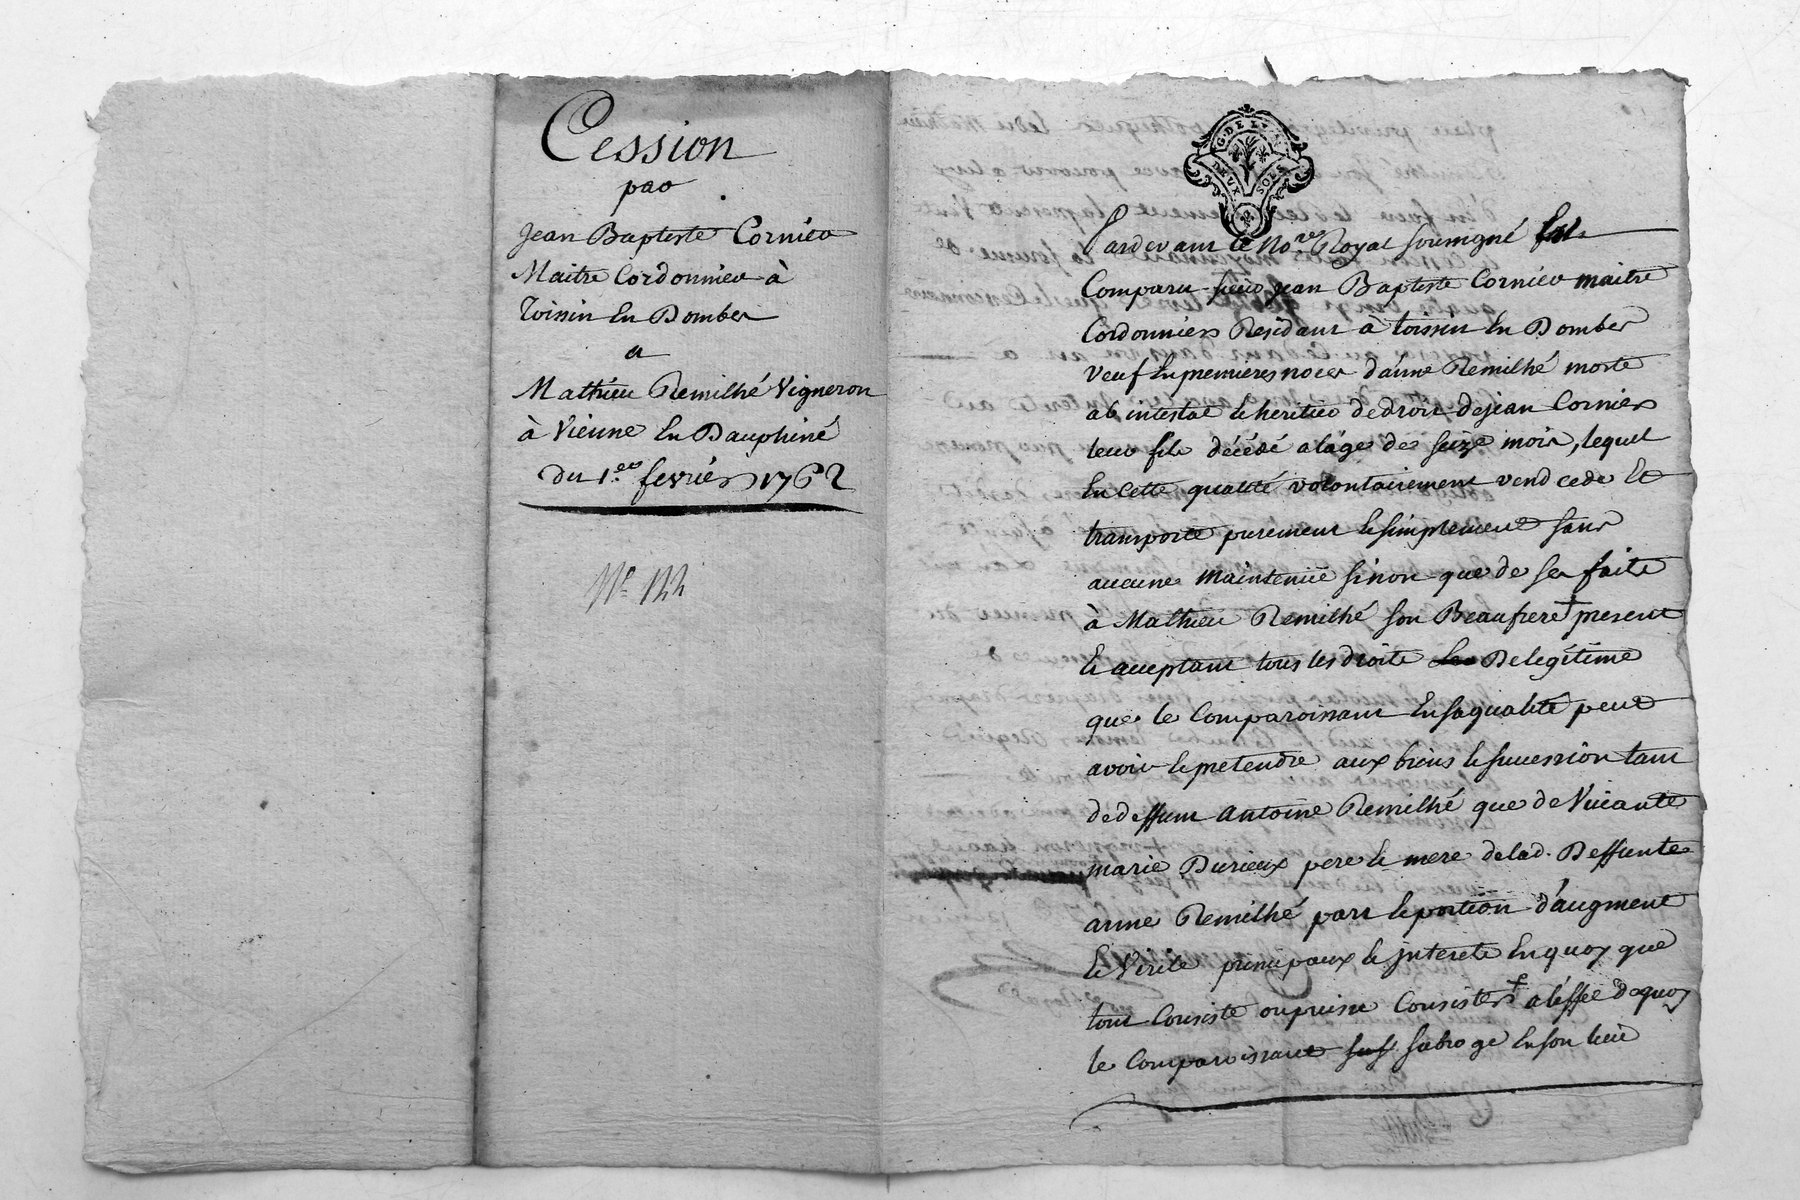 Cession
par
Jean Baptiste Cornier
Maitre Cordonnier à
Toissin En Dombes
a
Mathieu Remilhé Vigneron
à Vienne En Dauphiné
du 1.er fevrier 1762
G. DE LYON
DEUX SOLS
Pardevant le No.re Royal soussigné fut
Comparu sieur Jean Baptiste Cornier maitre
Cordonnier Residant à toissin En Dombes
veuf En premieres noces d'anne Remilhé morte
ab intestat Et heritier de droit de jean Cornier
leur fils décédé a l'age de seize mois, lequel
En cette qualité volontairement vend cede Et
transporte purement Et simplement sans
aucune maintenüe sinon que de ses faits
à Mathieu Remilhé son Beaufrere + present
Et acceptant tous les droits De legitime
que le Comparoissant En sa qualité peut
avoir Et pretendre aux biens Et succession tant
de deffunt antoine Remilhé que de
marie Durieux pere Et mere de lad. Deffunte
anne Remilhé part Et portion d'augment
Et Virile principaux Et interets En quoy que
tout Consiste ou puisse Consister + a l'effet de quoy
le Comparoissant subroge En son lieu